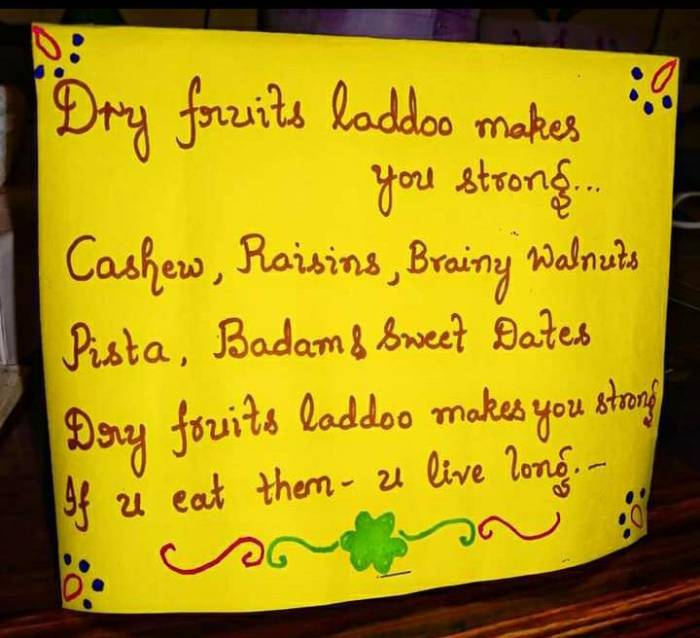 Dry fruits laddoo makes
you strong...
Cashew, Raisins, Brainy Walnuts
Pista, Badam & Sweet Dates
Dry fruits laddoo makes you strong
If u eat them - u live long. -